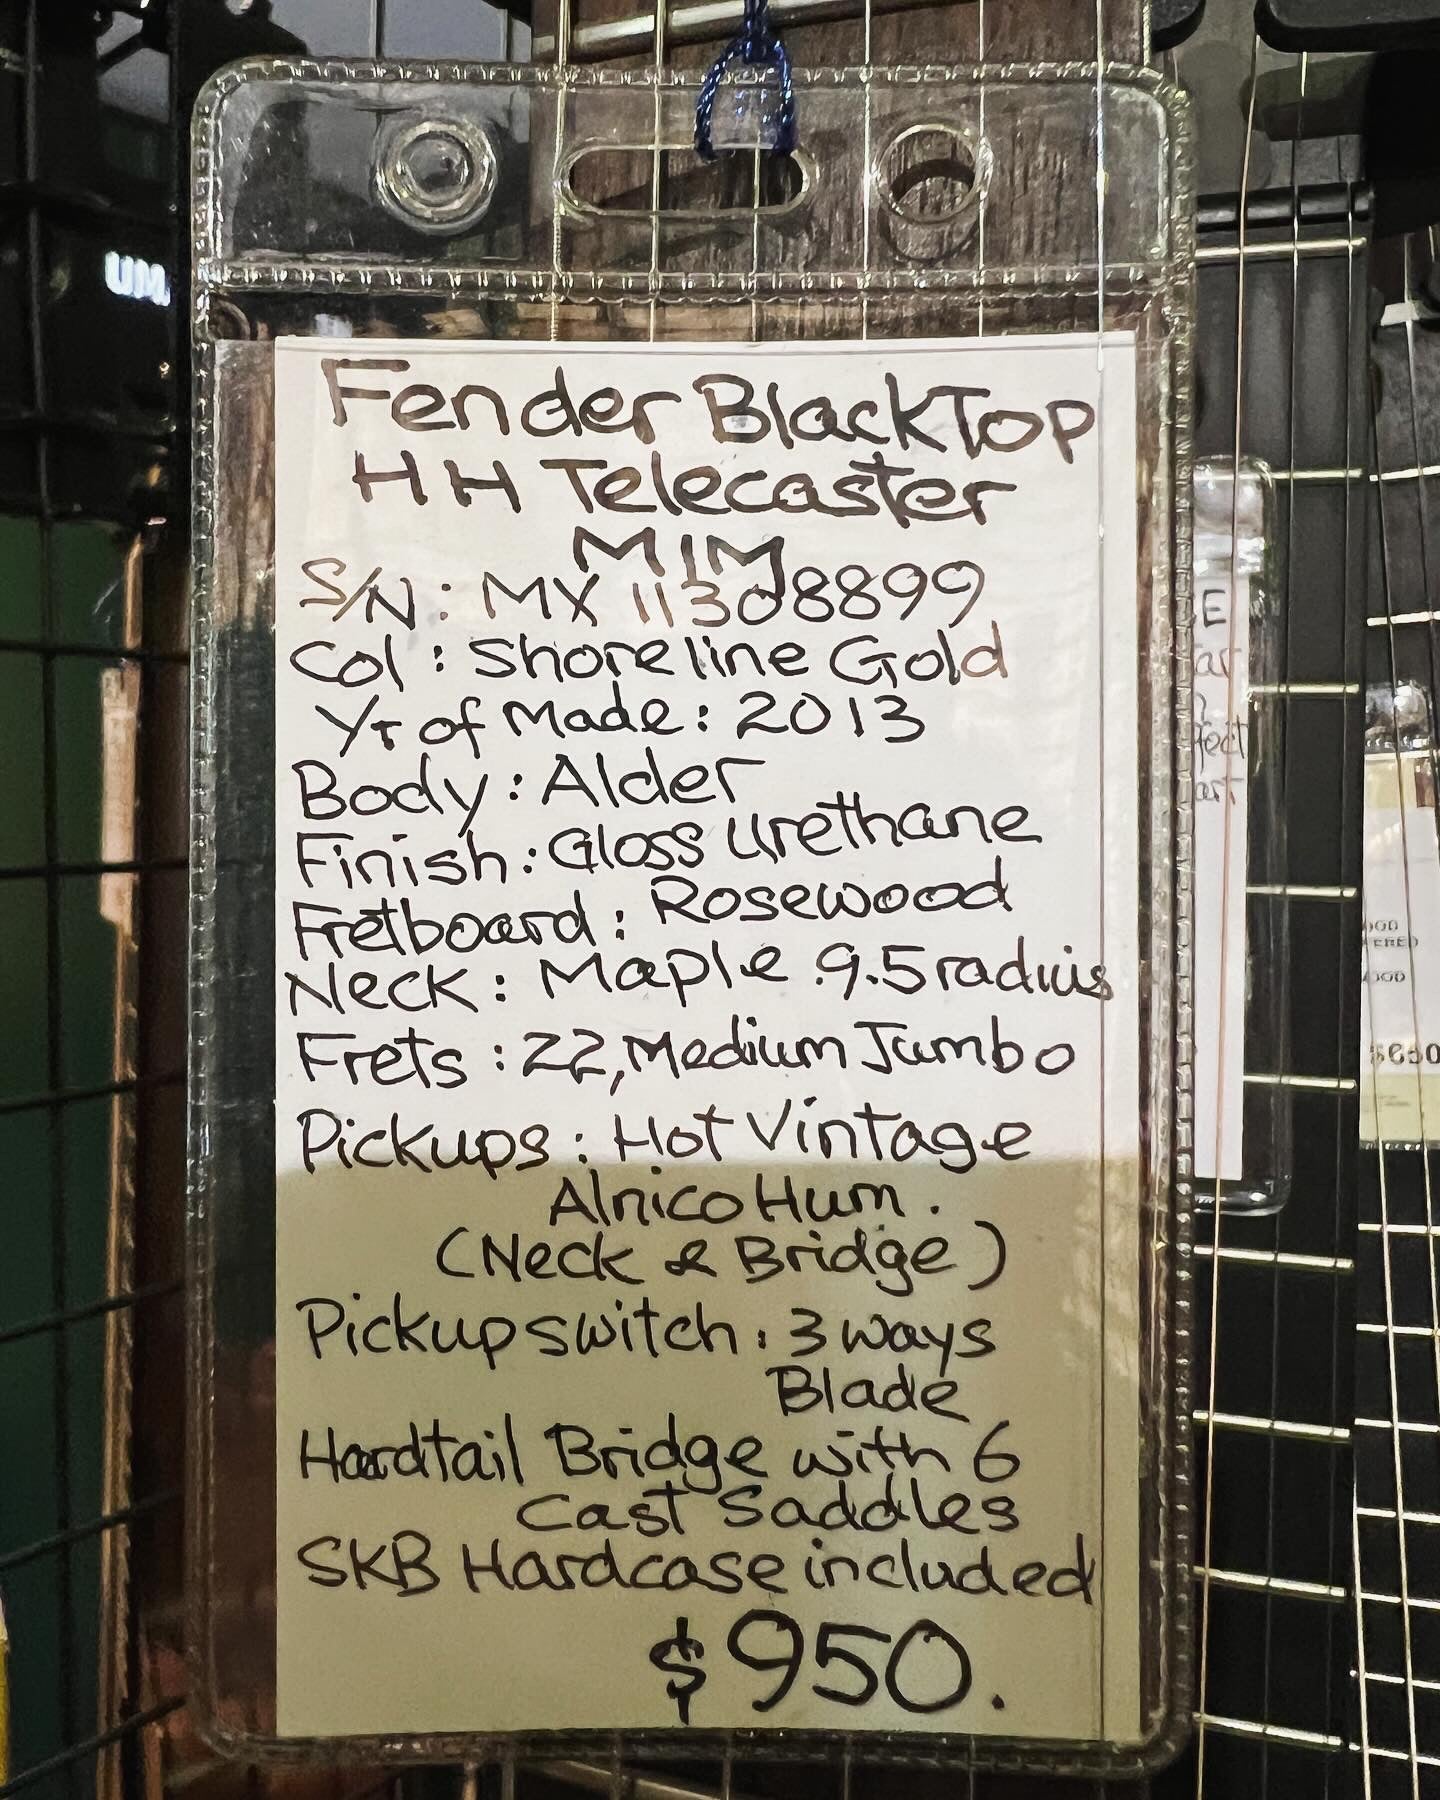 UM.
Fender BlackTop
HH Telecaster
MIM
S/N: MX 11308899
Col: Shoreline Gold
Yr of Made: 2013
Body: Alder
Finish: Gloss Urethane
Fretboard: Rosewood
Neck: Maple 9.5 radius
Frets: 22, Medium Jumbo
Pickups: Hot Vintage
Alnico Hum.
(Neck & Bridge)
Pickup switch: 3 ways
Blade
Hardtail Bridge with 6
Cast Saddles
SKB Hardcase included
$950.